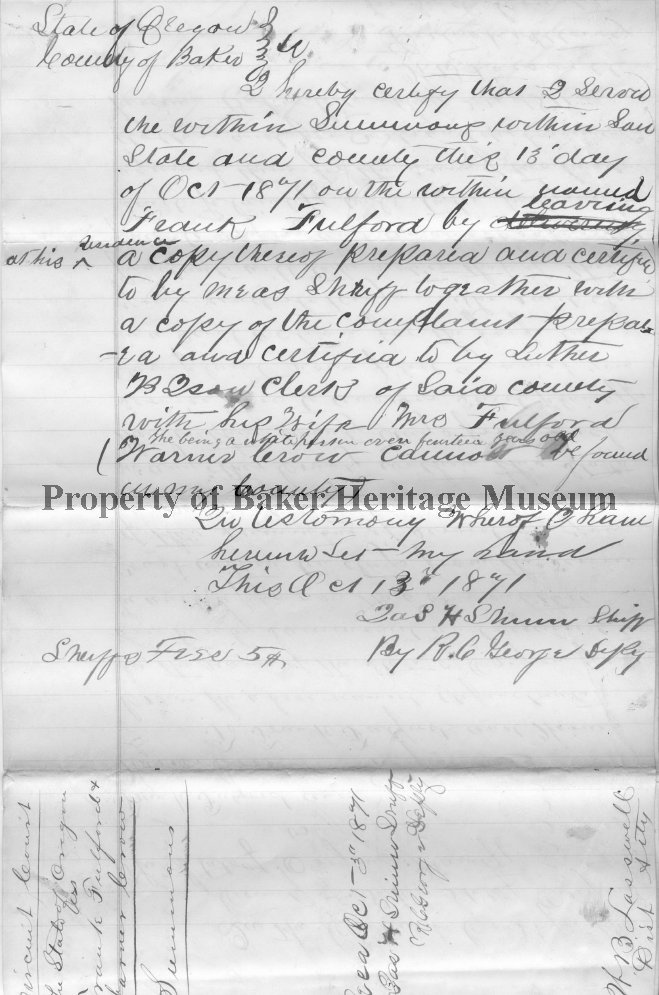 State of Oregon
County of Baker } ss
I hereby certify that I served
the within Summons within Said
State and county this 13" day
of Oct 1871 on the within named
leaving
Frank Fulford by
at his residence a copy thereof prepared and certified
to by me as Shriff togeather with
a copy of the complaint prepar
-ed and certified to by Luther
B Ison Clerk of Said county
with his Wife Mrs Fulford
She being a white person over fourteen years old
(Warner Crow cannot be found
in my County
Property of Baker Heritage Museum
In testomony Wherof I have
herunto Set my hand
This Oct 13th 1871
Jas H Shinn Shiff
Sheriffs Fees 5$ By R. C George Dpty
Circuit Court
The State of Oregon
vs
Frank Fulford &
Warner Crow
Summons
Oct 3d 1871
Jas H Shinn Shiff
R C George Depty
W B Lasswell
Dist Atty